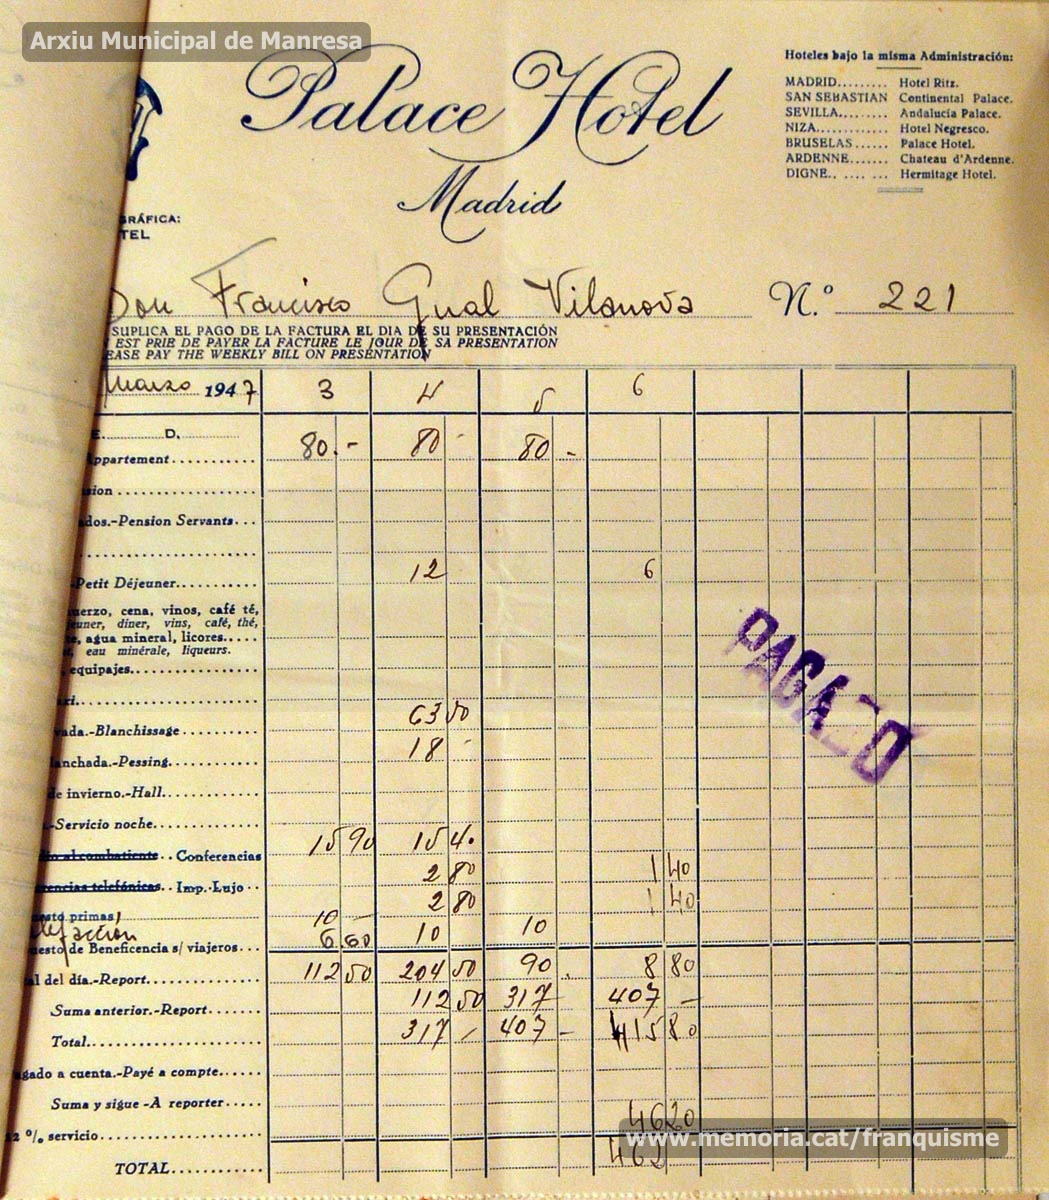 Arxiu Municipal de Manresa
Palace Hotel
Madrid
Hoteles bajo la misma Administración:
MADRID......... Hotel Ritz.
SAN SEBASTIAN Continental Palace.
SEVILLA........ Andalucía Palace.
NIZA............ Hotel Negresco.
BRUSELAS...... Palace Hotel.
ARDENNE....... Chateau d'Ardenne.
DIGNE.. .... ... Hermitage Hotel.
GRÁFICA:
TEL
Don Francisco Gual Vilanova N.º 221
SUPLICA EL PAGO DE LA FACTURA EL DIA DE SU PRESENTACIÓN
EST PRIE DE PAYER LA FACTURE LE JOUR DE SA PRESENTATION
EASE PAY THE WEEKLY BILL ON PRESENTATION
Marzo 1947 3 4 5 6
E. D.
Appartement 80.- 80 - 80 -
sion
ados.-Pension Servants...
-Petit Déjeuner 12 6
uerzo, cena, vinos, café té,
euner, diner, vins, café, thé,
e, agua mineral, licores.....
eau minérale, liqueurs.
equipajes
xi
63 50
vada.-Blanchissage
18 -
lanchada.-Pessing.
de invierno.-Hall
-Servicio noche
15 90 15 4.
al combatiente.. Conferencias
2 80 1 40
rencias telefónicas.. Imp.-Lujo..
2 80 1 40
uesto primas 10 -
uesto de Beneficencia s/ viajeros... 6 60 10 10
al del día.-Report 112 50 204 50 90 . 8 80
Suma anterior.-Report 112 50 317 407 -
Total 317 - 407 - 415 80
agado a cuenta.-Payé a compte
Suma y sigue -A reporter
46 20
2 % servicio
TOTAL 462
PAGADO
www.memoria.cat/franquisme